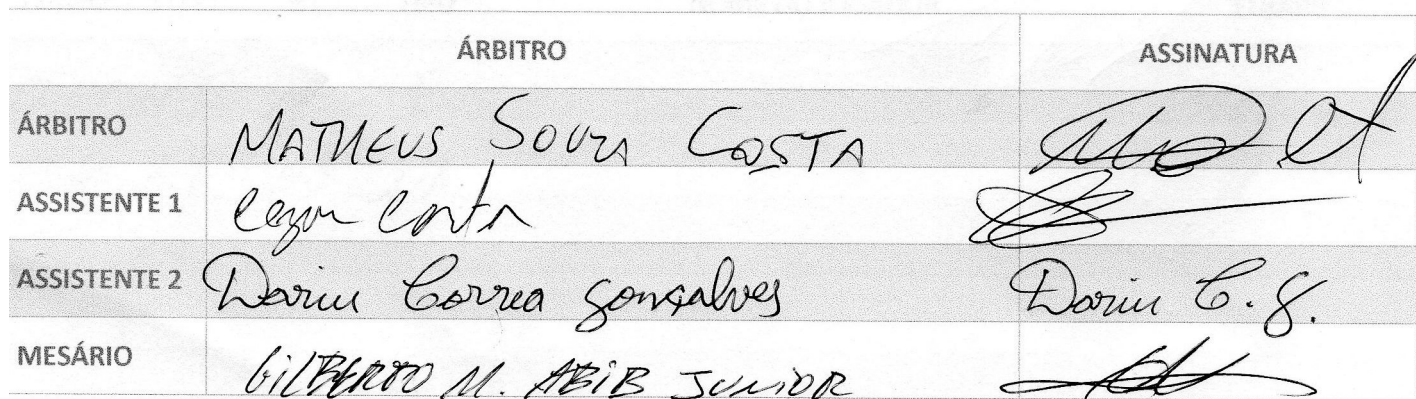 ÁRBITRO ASSINATURA
ÁRBITRO MATHEUS SOUZA COSTA
ASSISTENTE 1 Costa
ASSISTENTE 2 Darin Correa Gonçalves Darin C. G.
MESÁRIO GILBERTO M. ABIB JUNIOR